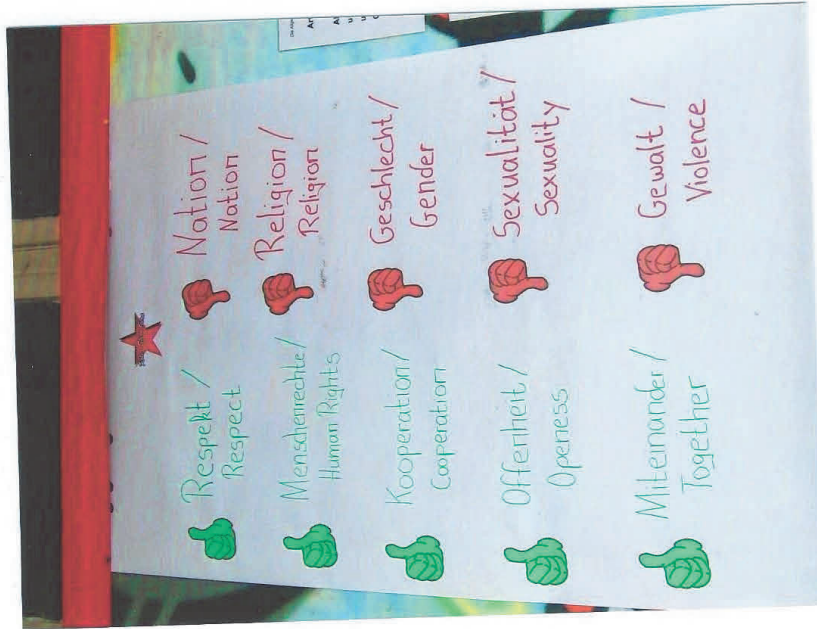 Respekt /
Respect
Menschenrechte/
Human Rights
Kooperation/
Cooperation
Offenheit/
Openess
Miteinander/
Together
Nation/
Nation
Religion/
Religion
Geschlecht/
Gender
Sexualität/
Sexuality
Gewalt /
Violence